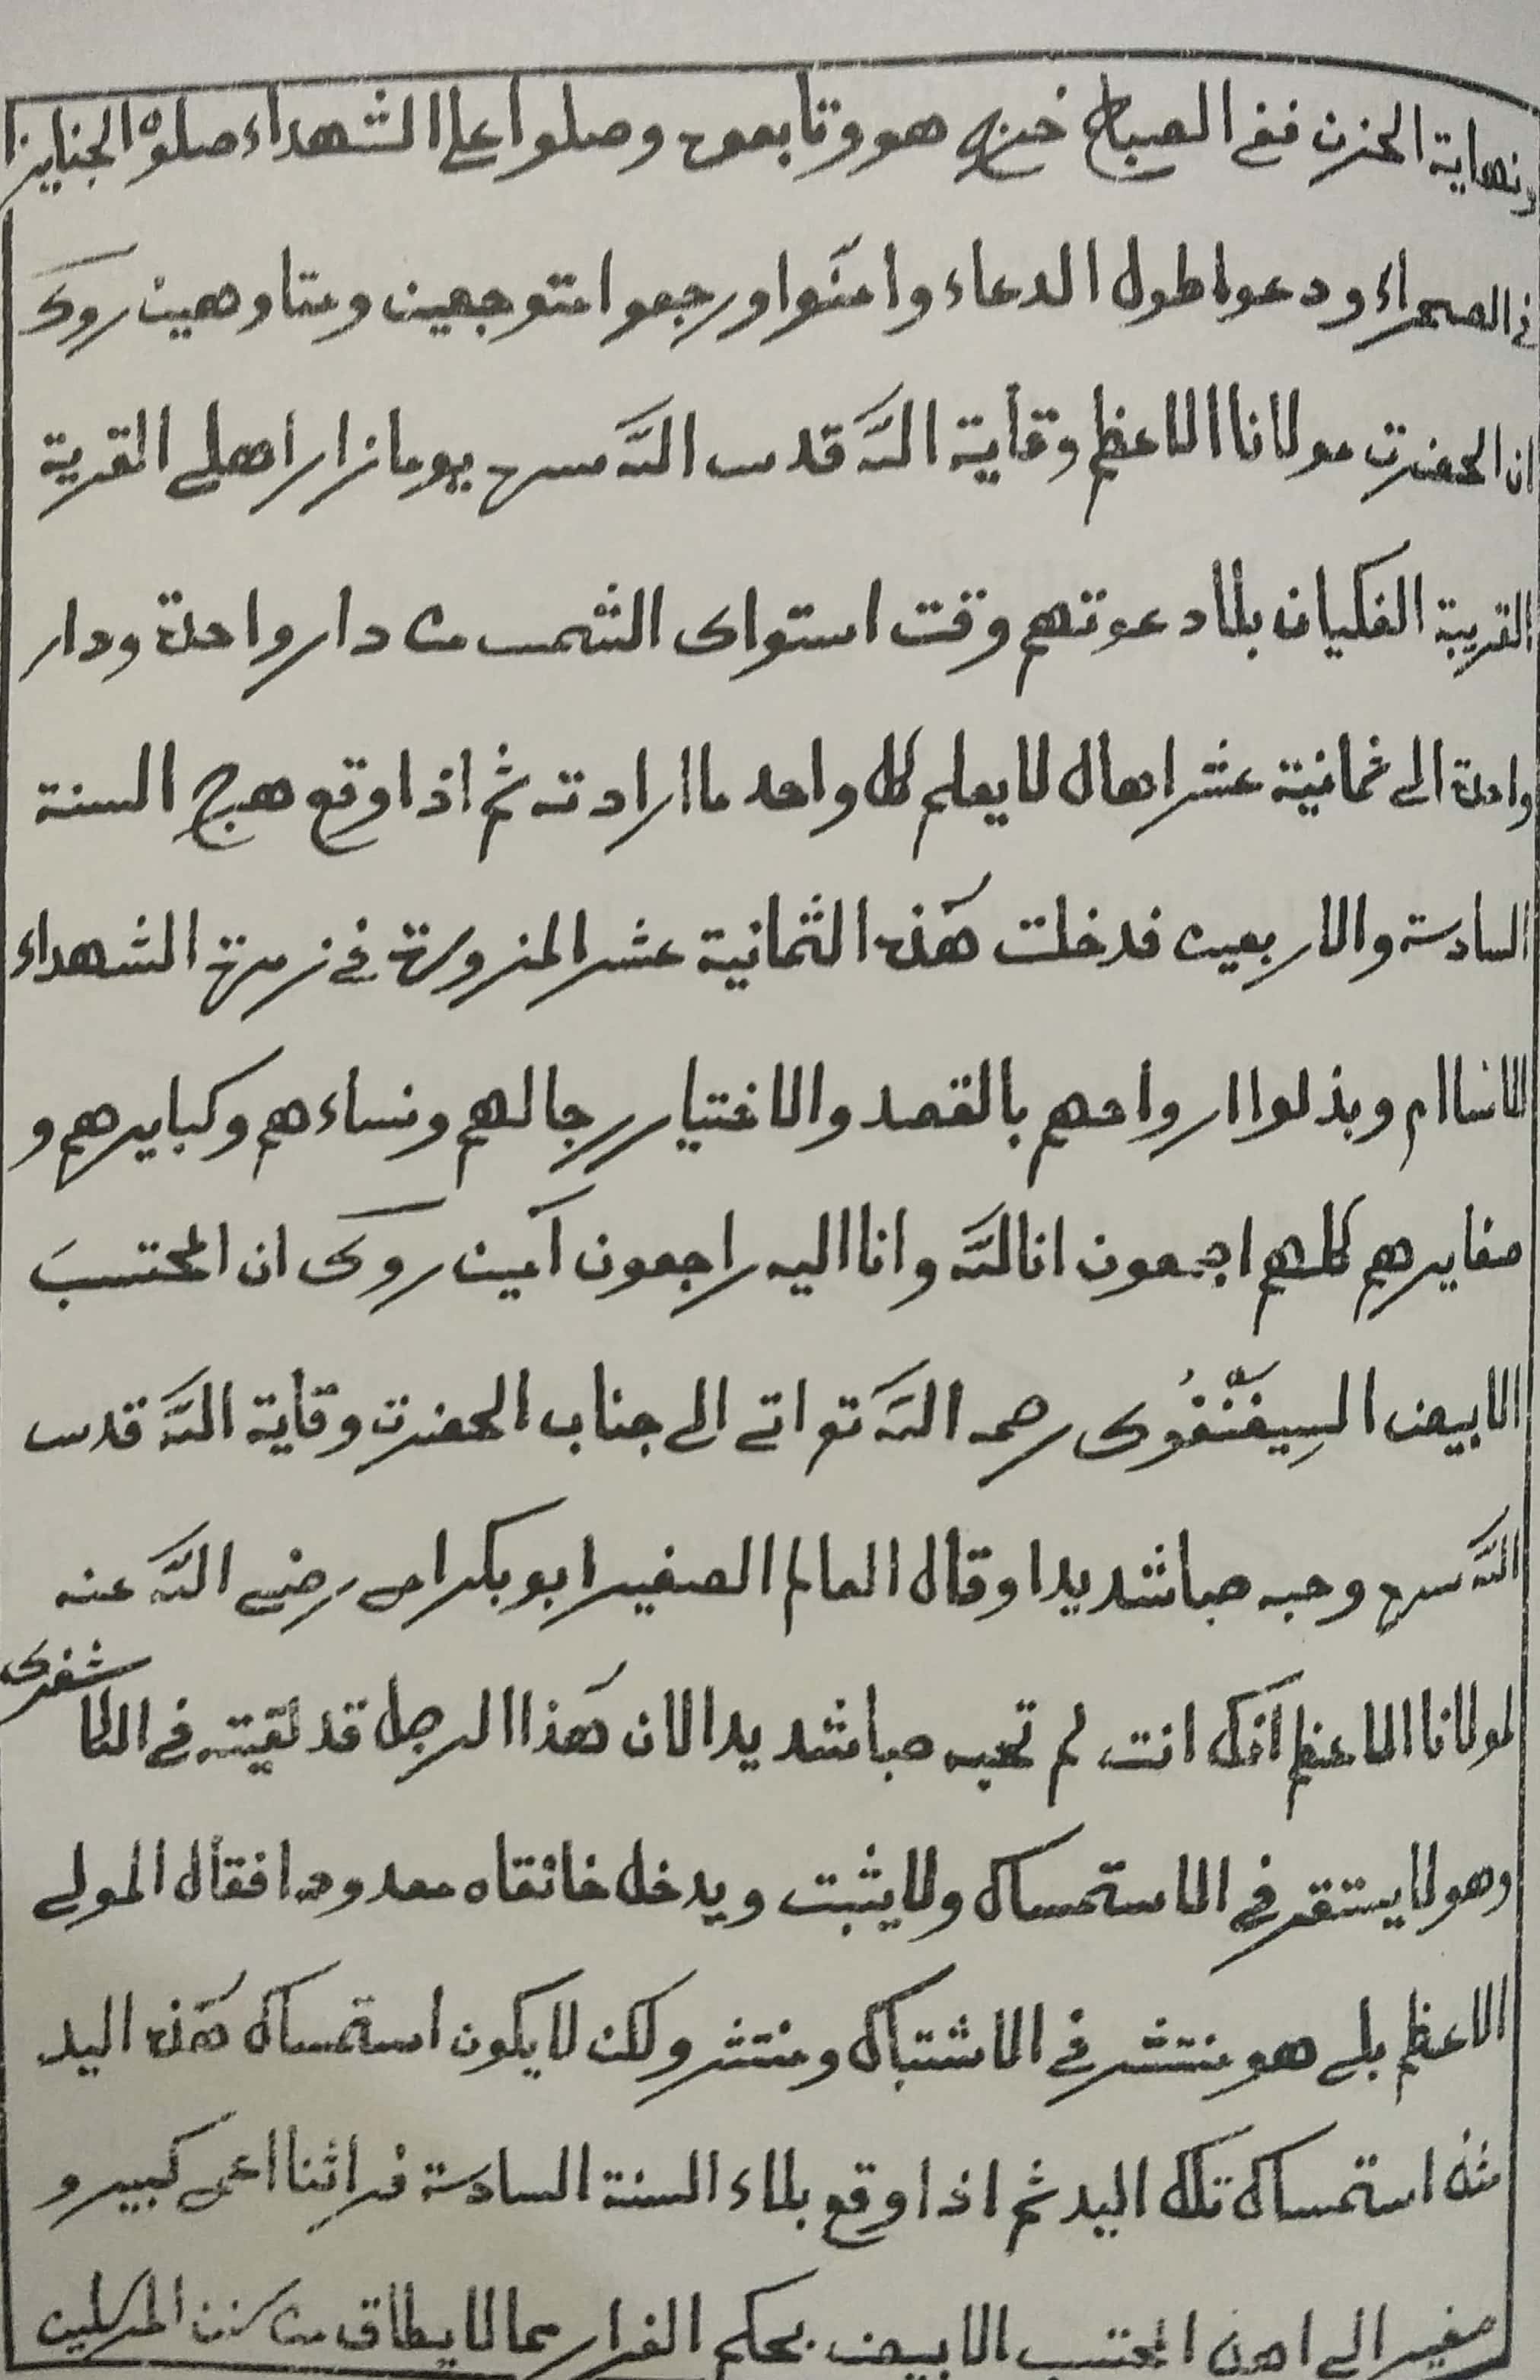 ونهاية الحزن ففى الصباح خرج هو وتابعوه وصلوا على الشهداء صلوة الجنايز
فى الصحراء ودعوا طول الدعاء وامنوا ورجعوا متوجعين ومتاوهين روى
ان الحضرت مولانا الاعظم وقاية الله قدس الله سره يوما زار اهلى القرية
القريبة الفكيان بلا دعوتهم وقت استواى الشمس من دار واحدة ودار
واحدة الى ثمانية عشر اهال لا يعلم كل واحد ما ارادته ثم اذا وقع هرج السنة
السادسة والاربعين فدخلت هذه الثمانية عشر المزورة فى زمرة الشهداء
وبذلوا ارواحهم بالقصد والاختيار رجالهم ونساءهم وكبايرهم و
صغايرهم كلهم اجمعون انا لله وانا اليه راجعون آمين روى ان المحتسب
الابيض رحمه الله تع اتى الى جناب الحضرت وقاية الله قدس
الله سره وحبه حبا شديدا وقال العالم الصغير ابوبكر رضى الله عنه
لمولانا الاعظم انك انت لم تحبه حبا شديدا لان هذا الرجل قد لقيته فى الكاشغرى
وهو لا يستقر فى الاستمساك ولا يثبت ويدخل خانقاه فقال المولى
الاعظم بلى هو منتشر فى الاشتباك ومنتشر ولكن لا يكون استمساك هذه اليد
مثل استمساك تلك اليد ثم اذا وقع بلاء السنة السادسة كبير و
صغير الى المحتسب الابيض بحكم الفرار مما لا يطاق من